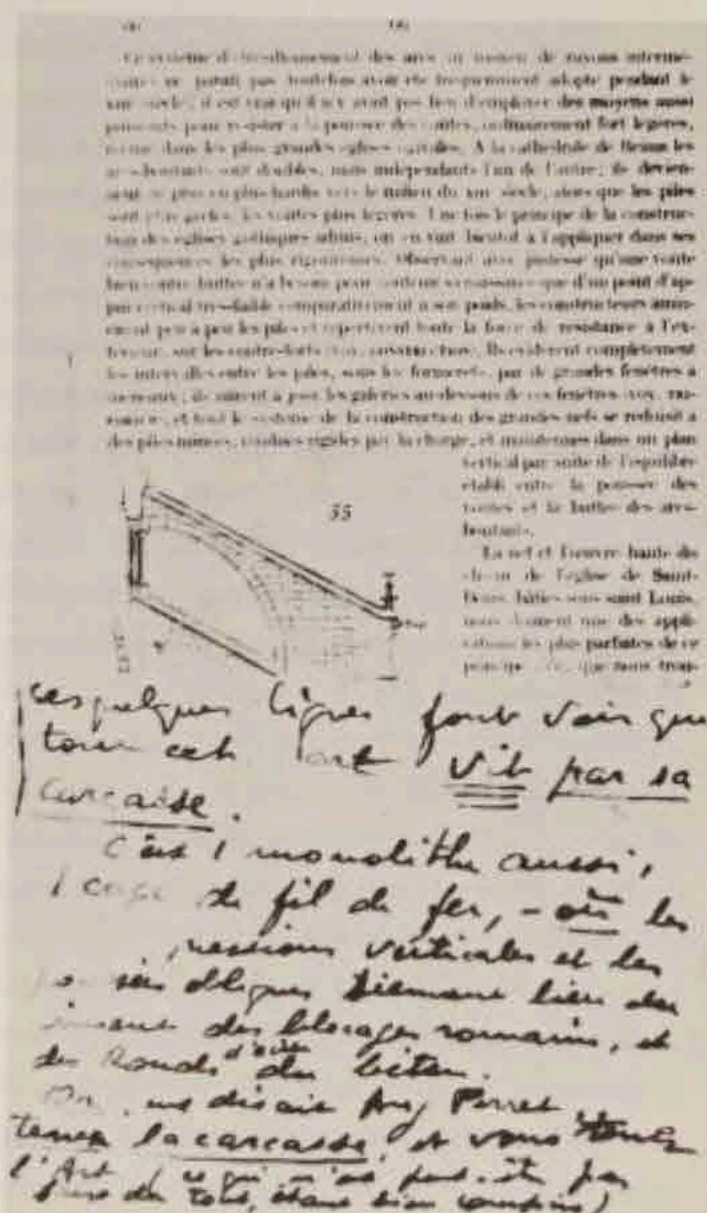 Ce système d'étrésillonnement des arcs au moyen de rayons intermé-
ne paraît pas toutefois avoir été fréquemment adopté pendant le
siècle; il est vrai qu'il n'y avait pas lieu d'employer des moyens aussi
puissants pour résister à la poussée des voûtes, ordinairement fort légères,
même dans les plus grandes églises ogivales. A la cathédrale de Reims les
arcs-boutants sont doubles, mais indépendants l'un de l'autre; ils devien-
nent de plus en plus hardis vers le milieu du XIIIe siècle, alors que les piles
sont plus grêles, les voûtes plus légères. Une fois le principe de la construc-
tion des églises gothiques admis, on en vint bientôt à l'appliquer dans ses
conséquences les plus rigoureuses. Observant avec justesse qu'une voûte
bien contre-buttée n'a besoin pour soutenir sa naissance que d'un point d'ap-
pui vertical très-faible comparativement à son poids, les constructeurs amin-
cirent peu à peu les piles et reportèrent toute la force de résistance à l'ex-
térieur, sur les contre-forts (voy. CONSTRUCTION). Ils évidèrent complétement
les intervalles entre les piles, sous les formerets, par de grandes fenêtres à
meneaux; ils mirent à jour les galeries au-dessous de ces fenêtres (voy. TRI-
FORIUM), et tout le système de la construction des grandes nefs se réduisit à
des piles minces, rendues rigides par la charge, et maintenues dans un plan
vertical par suite de l'équilibre
établi entre la poussée des
voûtes et la buttée des arcs-
boutants.
La nef et l'œuvre haute du
chœur de l'église de Saint-
Denis, bâties sous saint Louis,
nous donnent une des appli-
cations les plus parfaites de ce
principe que nous trou-
55
Ces quelques lignes font voir que
tout cet art vit par sa
carcasse.
C'est 1 monolithe aussi,
1 cage de fil de fer, - où les
pressions verticales et les
obliques tiennent lieu du
ciment des blocages romains, et
des ronds d'acier du béton.
On me disait Aug Perret,
tenez la carcasse, et vous tenez
l'Art (ce qui n'est peut-être pas
du tout, étant bien compris)